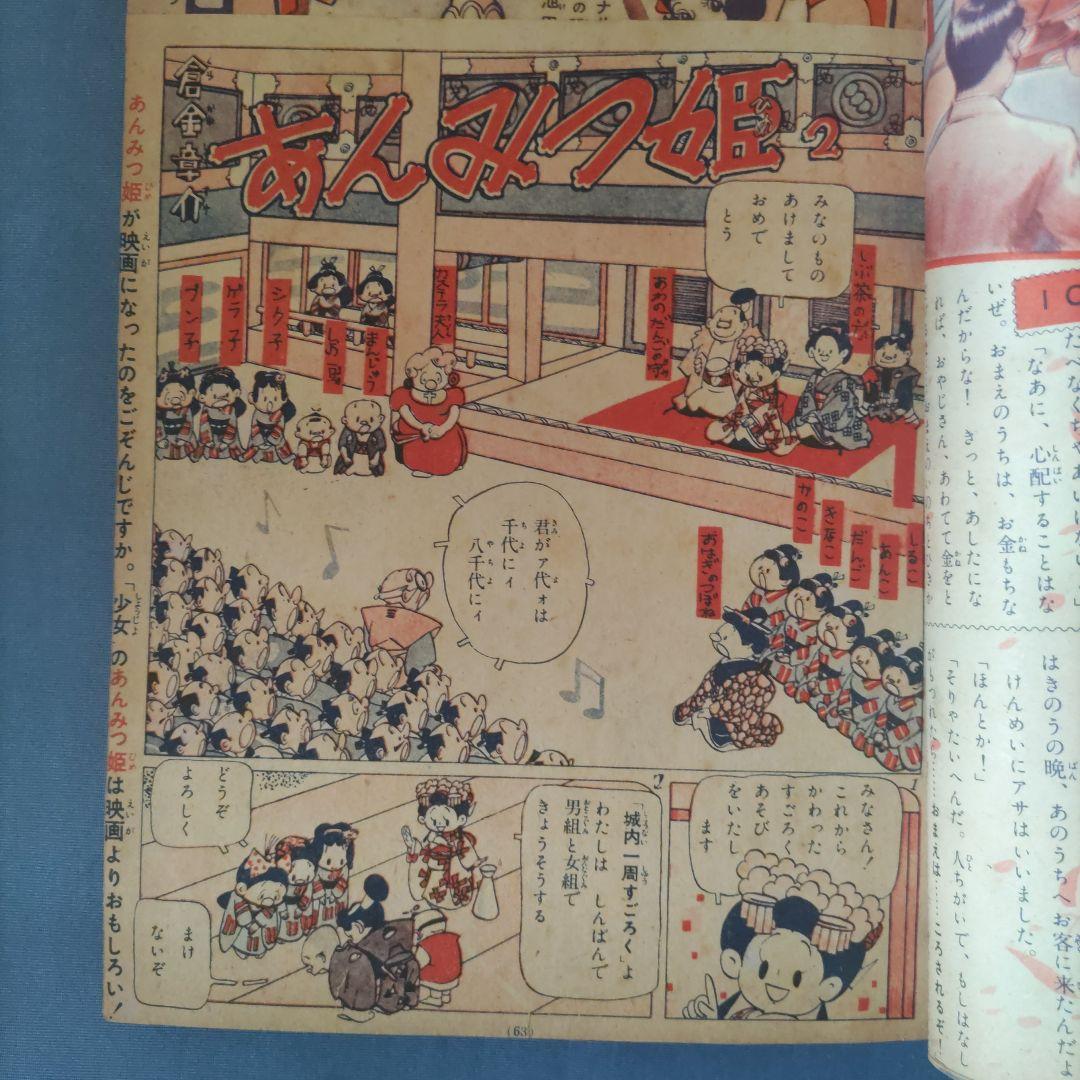 倉金章介
あんみつ姫 2
あんみつ姫が映画になったのをごぞんじですか。「少女」のあんみつ姫は映画よりおもしろい！
みないもの
あけまして
おめで
とう
しぶ茶の方
あわのだんごの守
カステラ夫人
まんじゅう
シク子
ゲラ子
プン子
君がァ代ォは
千代にィ
八千代にィ
しるこ
あんこ
だんご
きなこ
かのこ
おはぎのつぼね
1
みなさん！
これから
かわった
すごろく
あそび
をいたし
ます
2
「城内一周すごろく」よ
わたしは しんぱんで
男組と女組で
きょうそうする
どうぞ
よろしく
まけ
ないぞ
(63)
「なあに、心配することはな
いぜ。おまえのうちは、お金もちな
んだからな！ きっと、あしたにな
れば、おやじさん、あわてて金をと
はきのうの晩、あのうちへお客に来たんだよ
けんめいにアサはいいました。
「ほんとか！」
「そりゃたいへんだ。人ちがいで、もしはなし